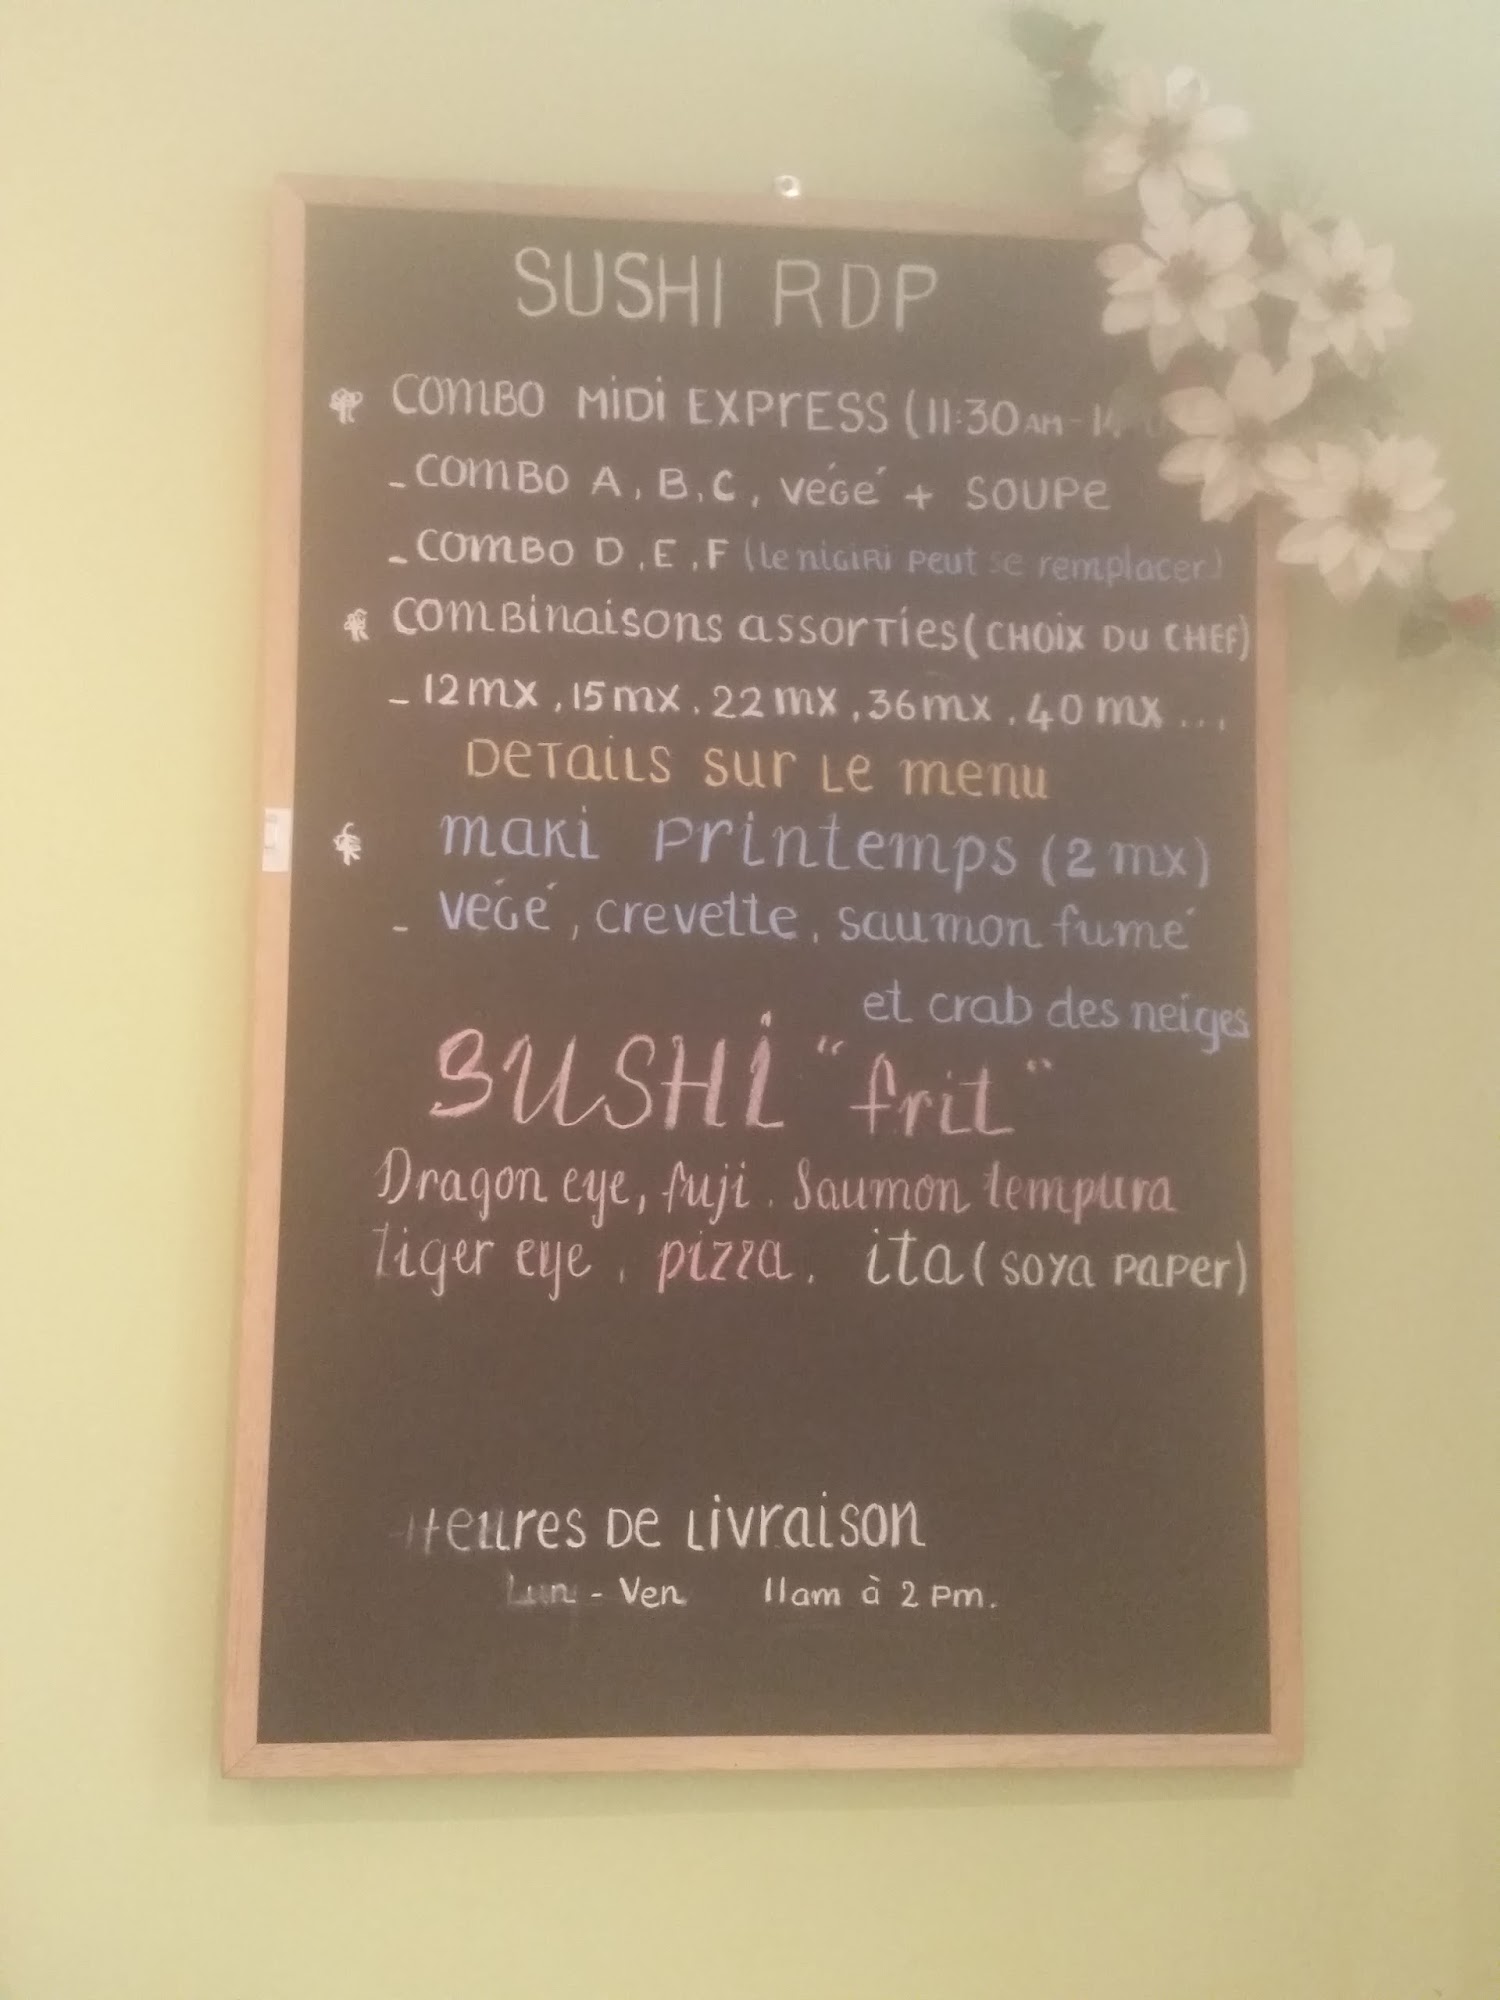 SUSHI RDP
COMBO MiDi EXPrESS (11:30AM - 14
- COMBO A, B, C, végé + SOUPE
- COMBO D, E, F (Le niGiRi peut se remplacer)
COMBinaisons assorties (CHOiX DU CHEF)
- 12mx, 15mx, 22mx, 36mx, 40mx...
Details sur Le menu
maki printemps (2mx)
- végé, crevette, saumon fumé
et crab des neiges
SUSHi "frit"
Dragon eye, fuji, Saumon tempura
tiger eye, pizza, ita (soya paper)
Heures De Livraison
Lun - Ven 11am à 2 pm.